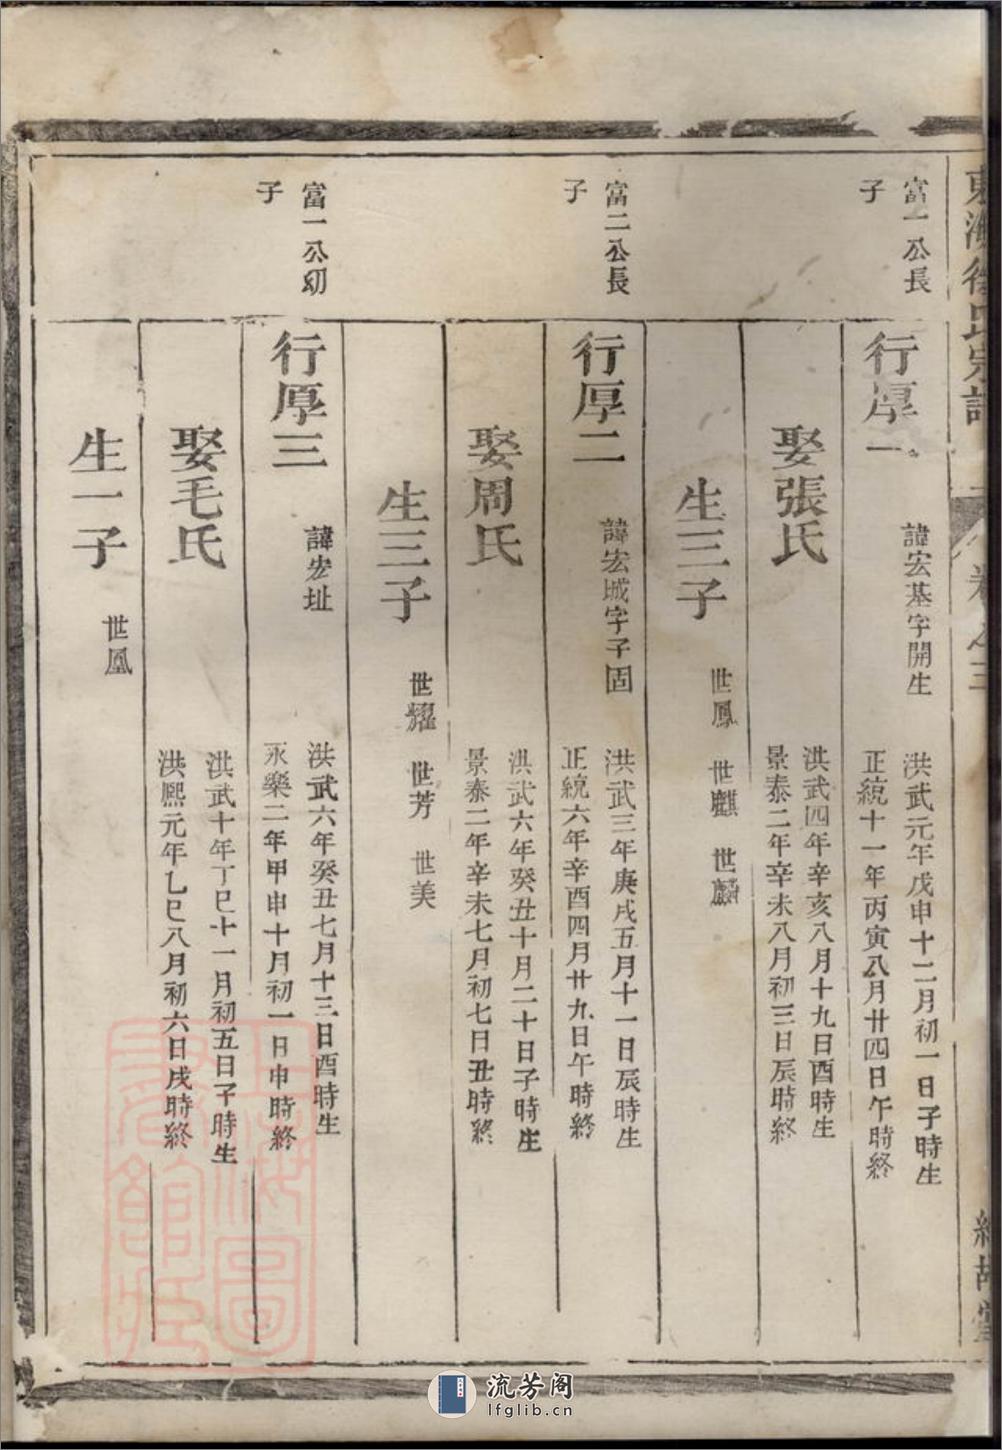 東海徐氏宗譜
卷之三
富一公長
子
行厚一
諱宏基字開生
洪武元年戊申十二月初一日子時生
正統十一年丙寅八月廿四日午時終
娶張氏
洪武四年辛亥八月十九日酉時生
景泰二年辛未八月初三日辰時終
生三子
世鳳 世麒 世麟
富二公長
子
行厚二
諱宏城字子固
洪武三年庚戌五月十一日辰時生
正統六年辛酉四月廿九日午時終
娶周氏
洪武六年癸丑十月二十日子時生
景泰二年辛未七月初七日丑時終
生三子
世耀 世芳 世美
富一公幼
子
行厚三
諱宏址
洪武六年癸丑七月十三日酉時生
永樂二年甲申十月初一日申時終
娶毛氏
洪武十年丁巳十一月初五日子時生
洪熙元年乙巳八月初六日戌時終
生一子
世凰
上海圖
書館藏
流芳阁
lfglib.cn